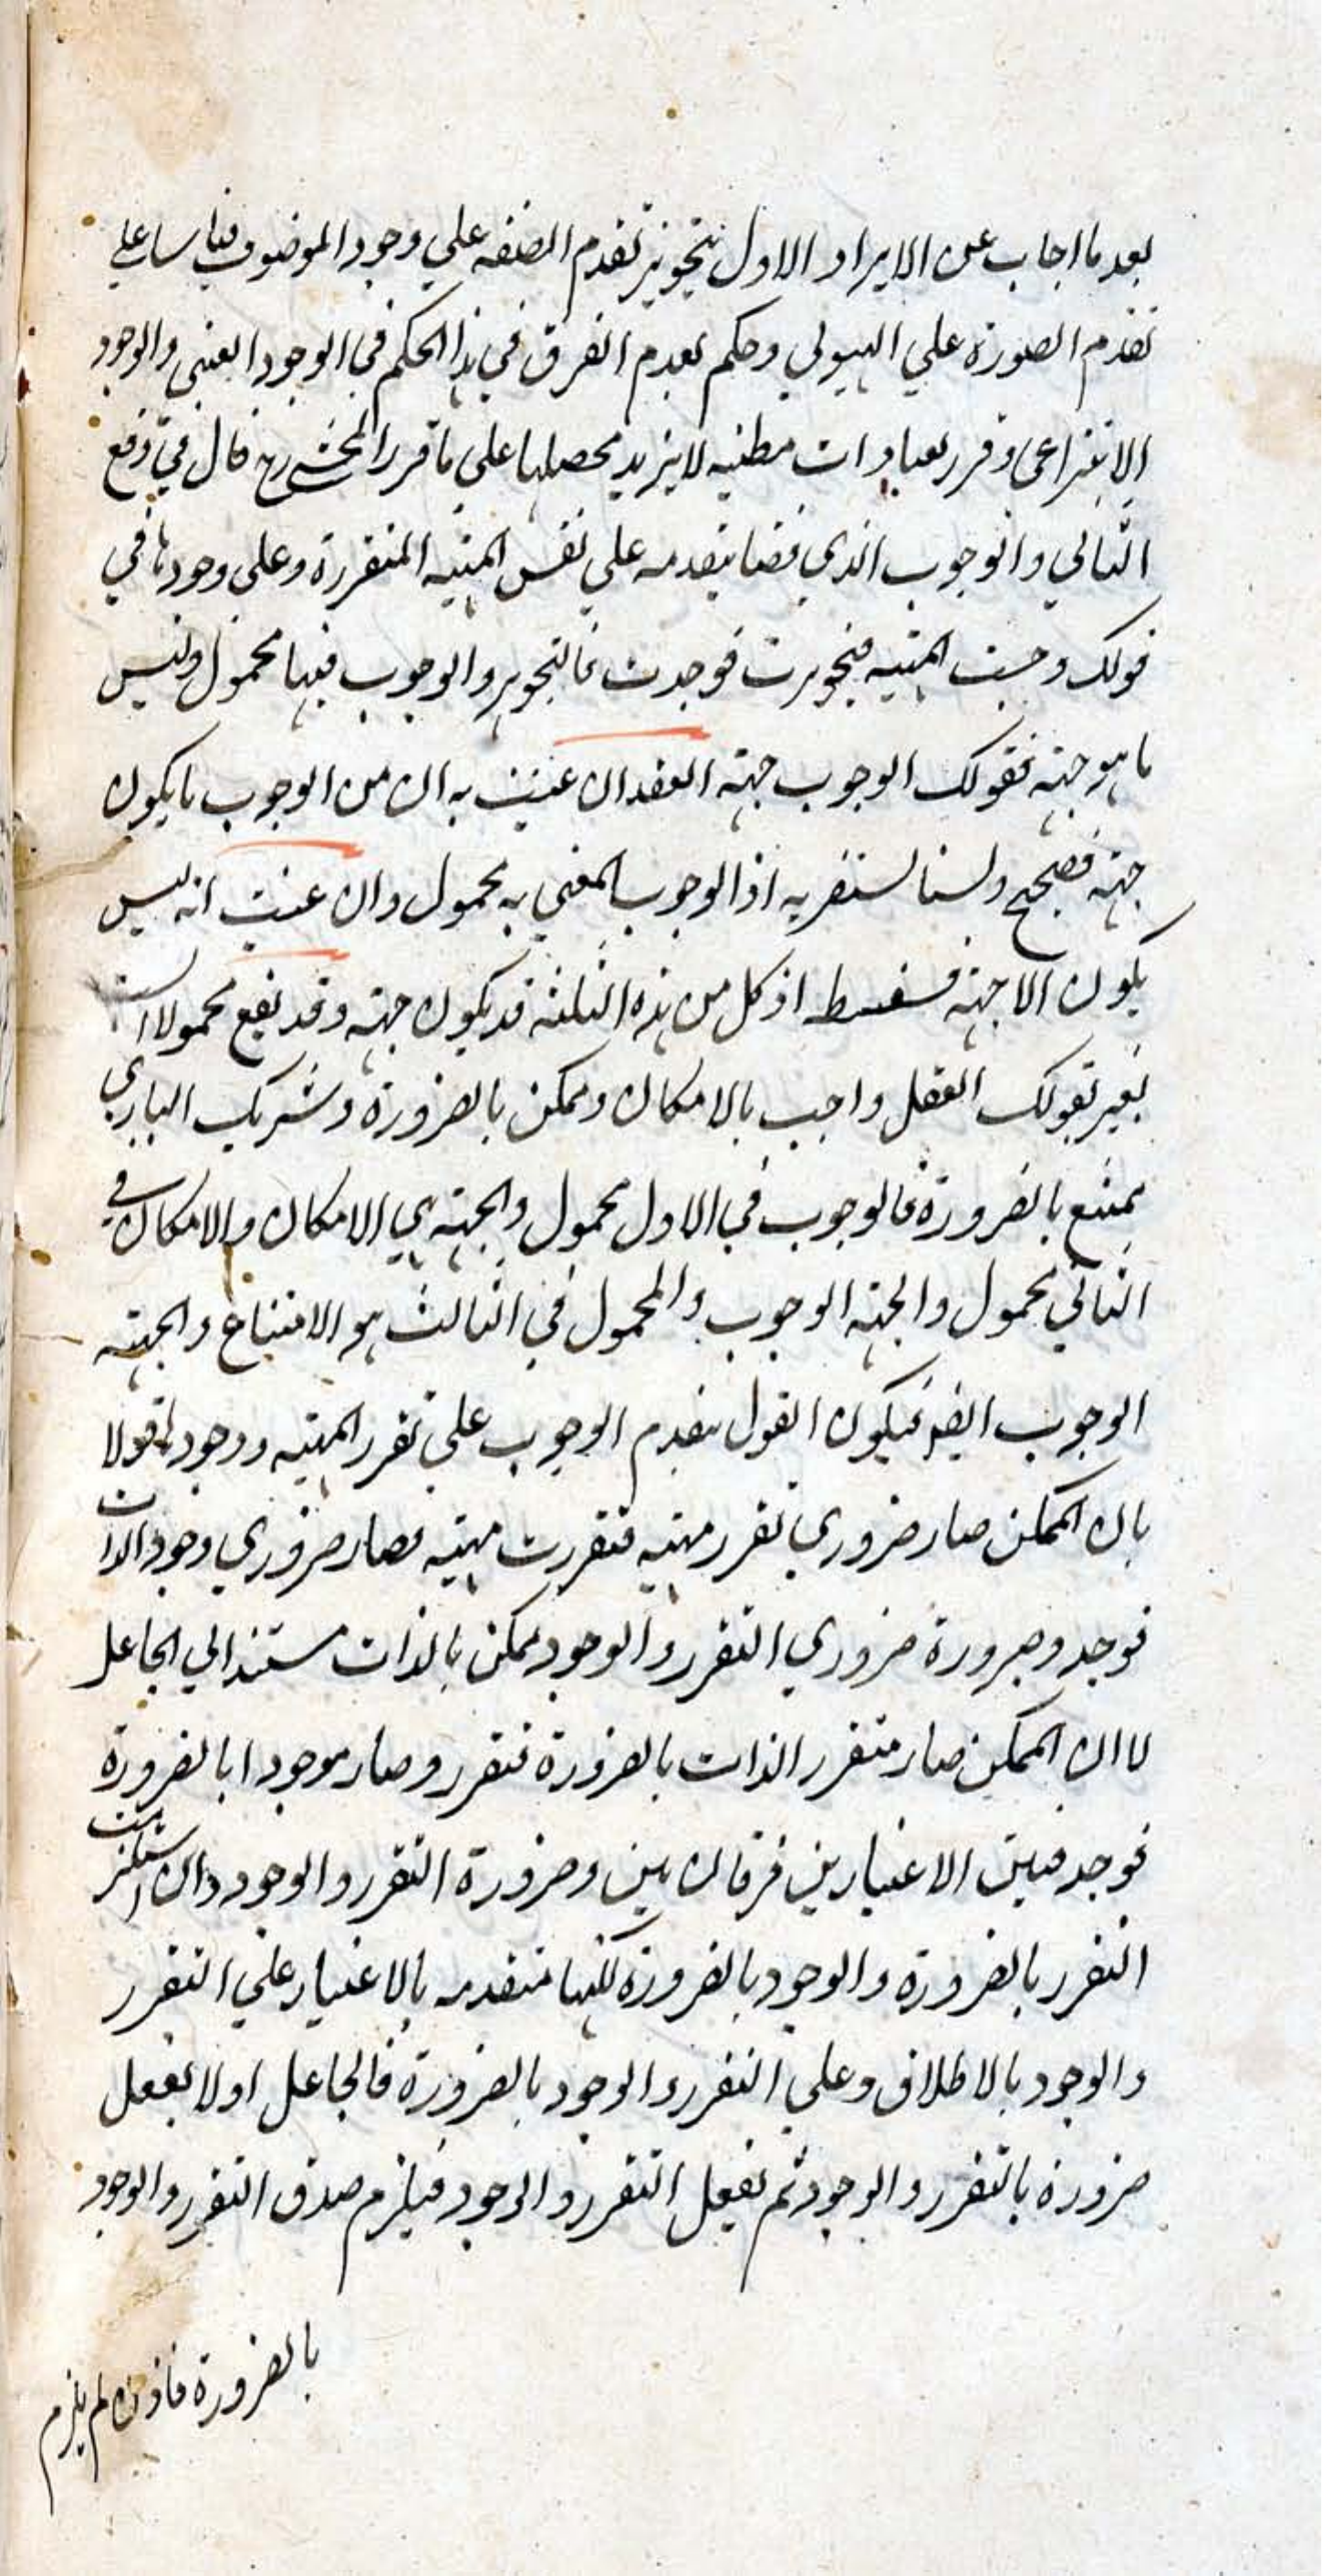 بعد ما اجاب عن الايراد الاول بتجويز تقدم الصفه علي وجود الموصوف قياسا علي
تقدم الصورة علي الهيولي وحكم بعدم الفرق في هذا الحكم في الوجود العيني والوجود
الانتزاعي وقرر بعبارات مطنبه لايزيد محصلها علي ما قرر المحشي رح قال في دفع
الثاني والوجوب الذي قضنا بتقدمه علي نفس المهيه المتقررة وعلي وجودها في
قولك وجبت المهيه فتجوهرت فوجدت فالتجوهر والوجوب فيها محمول وليس
ما هو جهته فقولك الوجوب جهته العقد ان عنيت به ان من الوجوب ما يكون
جهته فصحيح ولسنا نستضر به اذ الوجوب المعني به محمول وان عنيت انه ليس
يكون الا جهته فسفسط اذ كل من هذه الثلثة قد يكون جهته وقد يقع محمولا الست
تعبر بقولك العقل واجب بالامكان وممكن بالضرورة وشريك الباري
ممتنع بالضرورة فالوجوب في الاول محمول والجهته هي الامكان والامكان في
الثاني محمول والجهته الوجوب والمحمول في الثالث هو الامتناع والجهته
الوجوب ايضا فيكون القول بتقدم الوجوب علي تقرر المهيه ووجودها قولا
بان الممكن صار ضروري تقرر مهيته فتقررت مهيته فصار ضروري وجود الذات
فوجد وصيرورة ضروري التقرر والوجود ممكن بالذات مستند الي الجاعل
لا ان الممكن صار متقرر الذات بالضرورة فتقرر وصار موجودا بالضرورة
فوجد فبين الاعتبارين فرقان بين وضرورة التقرر والوجود وان استلزمت
التقرر بالضرورة والوجود بالضرورة لكنها متقدمه بالاعتبار علي التقرر
والوجود بالاطلاق وعلي التقرر والوجود بالضرورة فالجاعل اولا يفعل
ضرورة بالتقرر والوجود ثم يفعل التقرر والوجود فيلزم صدق التقرر والوجود
بالضرورة فاذن لم يلزم